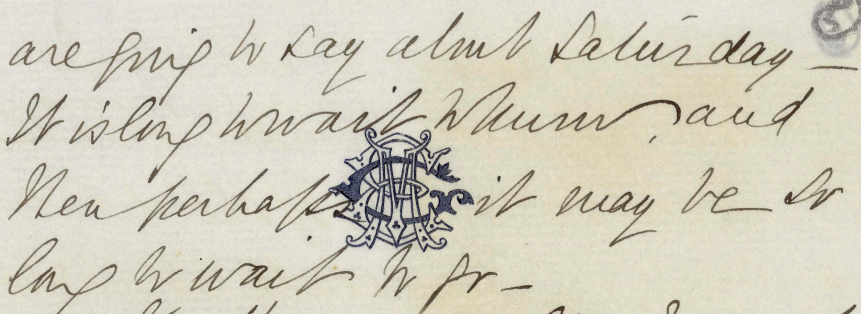 are going to say about Saturday —
It is long to wait to know, and
then perhaps it may be so
long to wait to go —